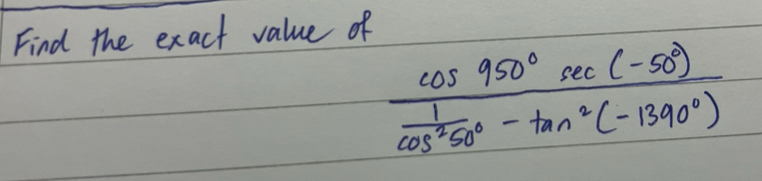 Find the exact value of
cos 950° sec (-50°)
1
cos²50° - tan²(-1390°)